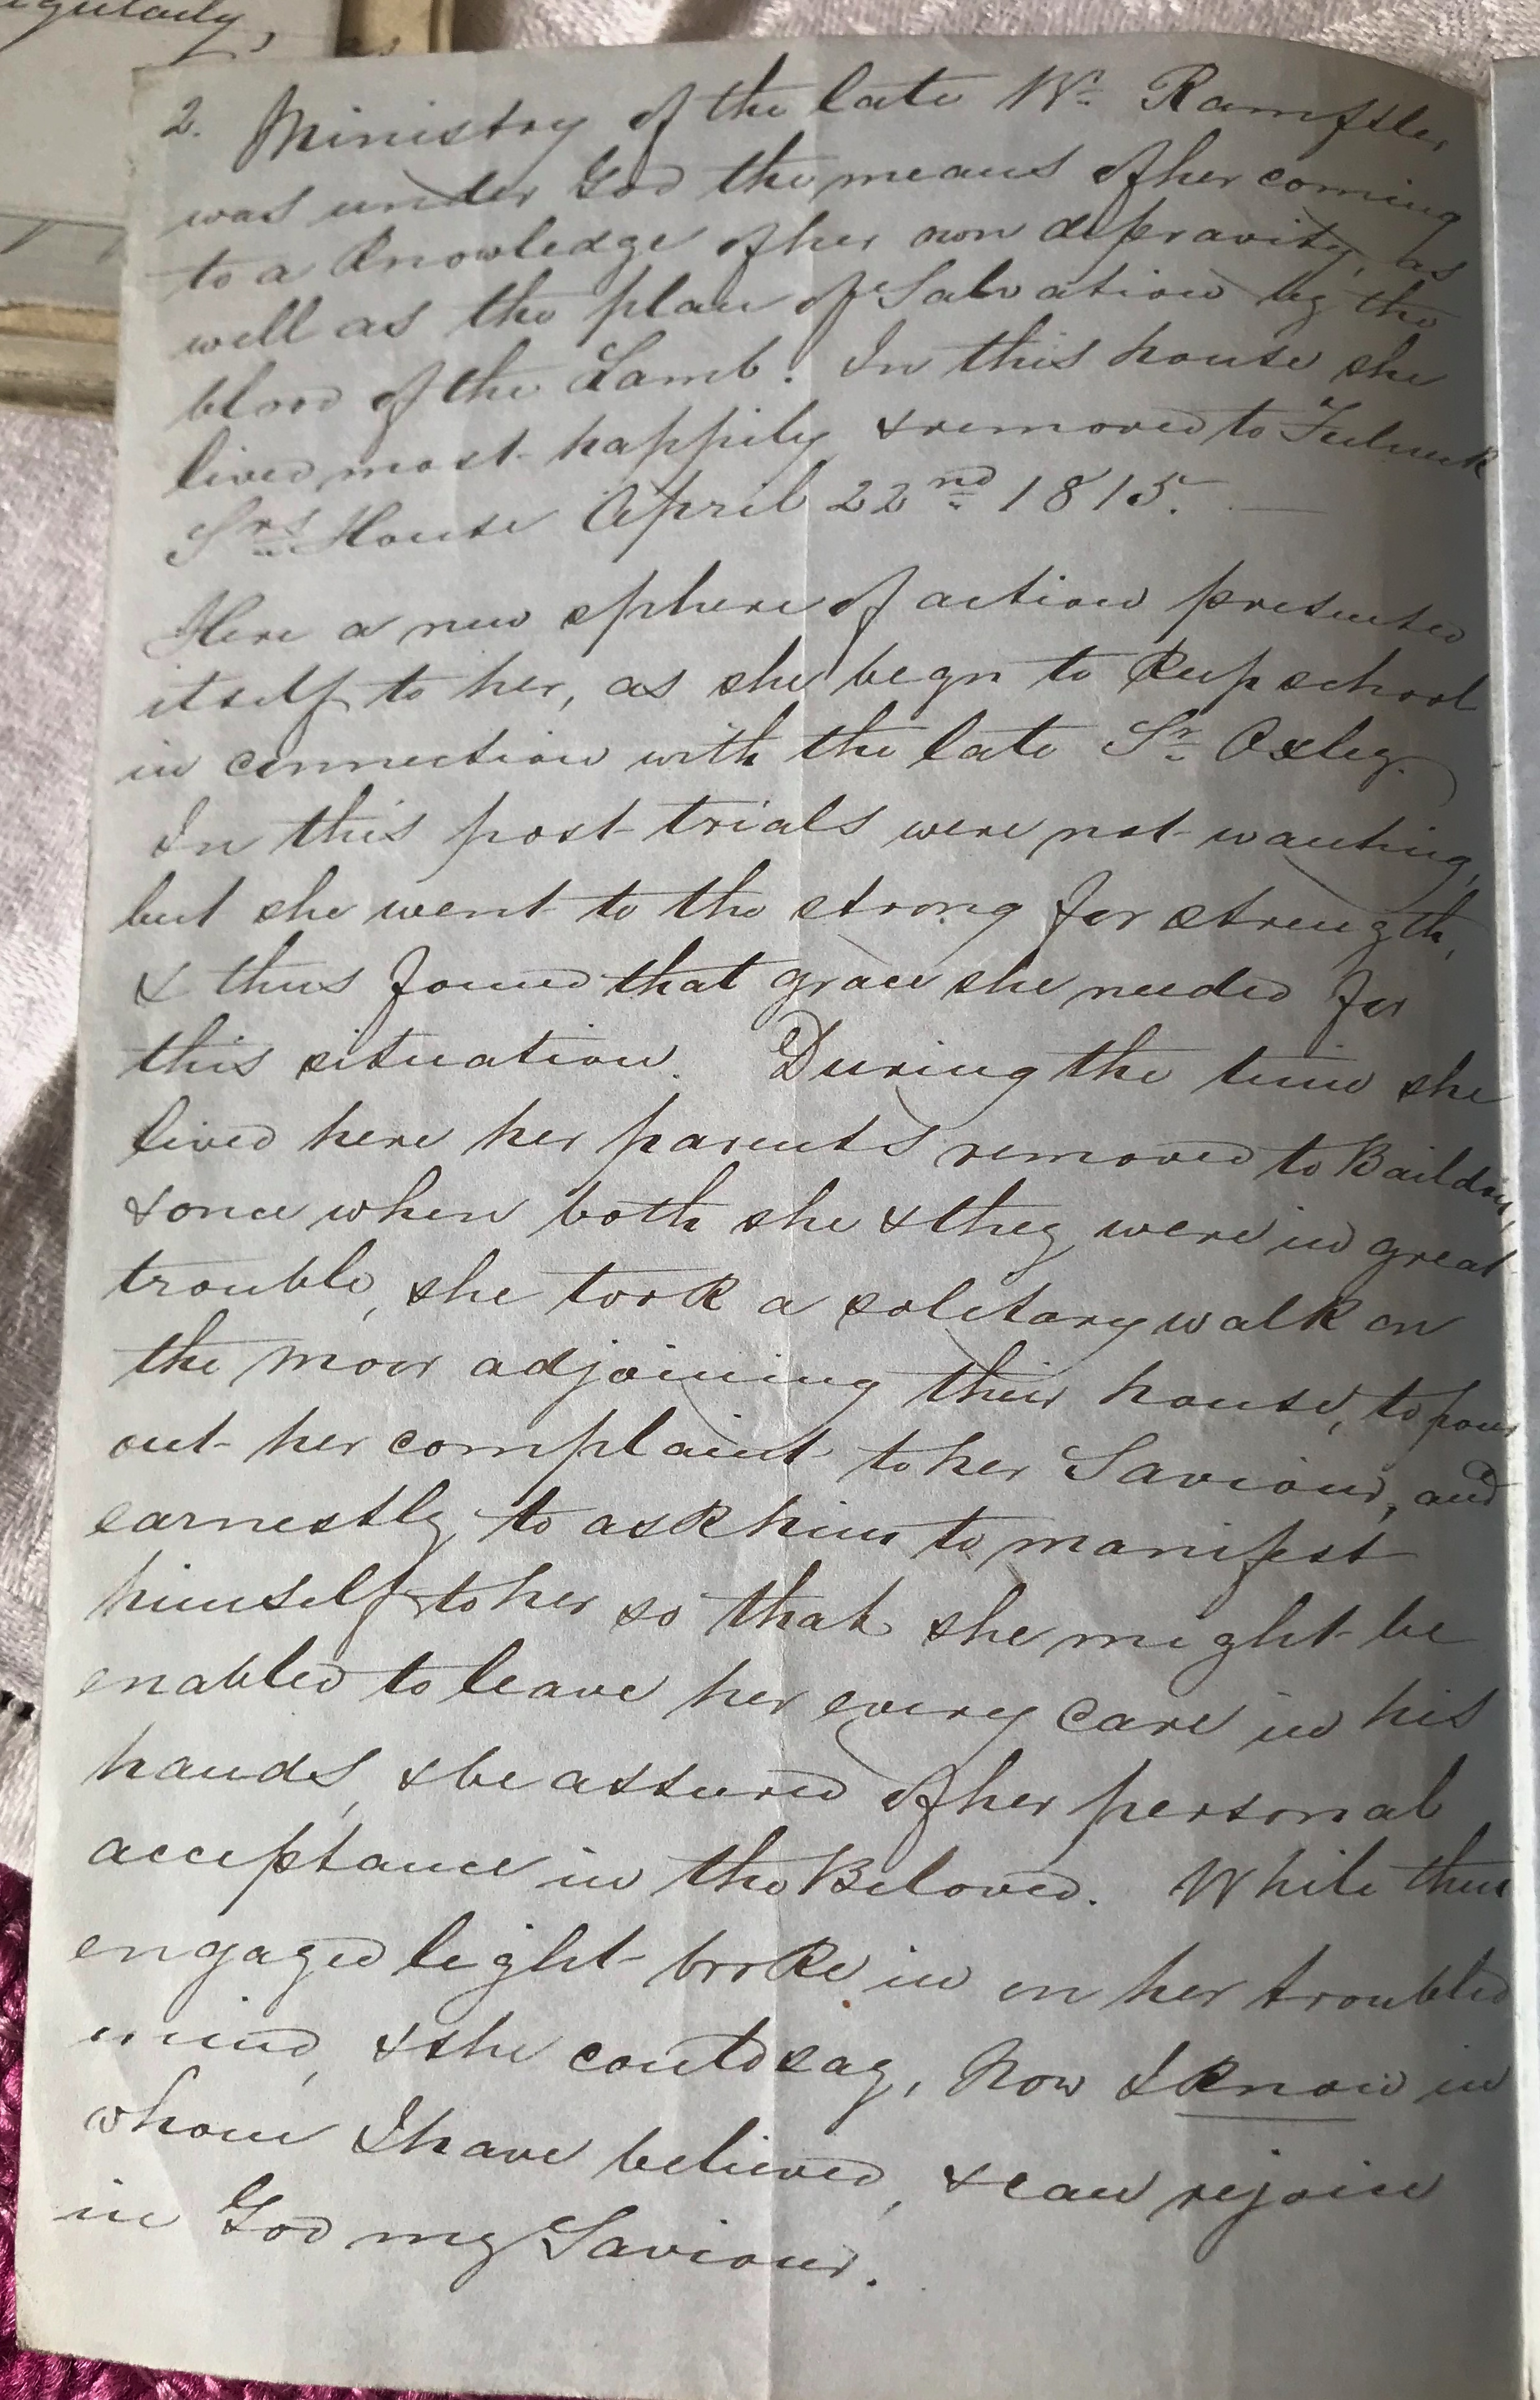 egularly,
2. Ministry of the late Wr. Ramftler
was under God the means of her coming
to a knowledge of her own depravity, as
well as the plan of Salvation by the
blood of the Lamb. In this house she
lived most happily & removed to Fulneck
Srs House April 22nd 1815. —
Here a new sphere of action presented
itself to her, as she begn to keep school
in connection with the late Sr. Oxley.
In this post trials were not wanting,
but she went to the strong for strength,
& thus found that grace she needed for
this situation. During the time she
lived here her parents removed to Baildon,
& once when both she & they were in great
trouble, she took a solitary walk on
the moor adjoining their house, to pour
out her complaint to her Saviour, and
earnestly to ask him to manifest
himself to her so that she might be
enabled to leave her every care in his
hands, & be assured of her personal
acceptance in the Beloved. While thus
engaged light broke in on her troubled
mind, & she could say, Now I know in
whom I have believed, & can rejoice
in God my Saviour.